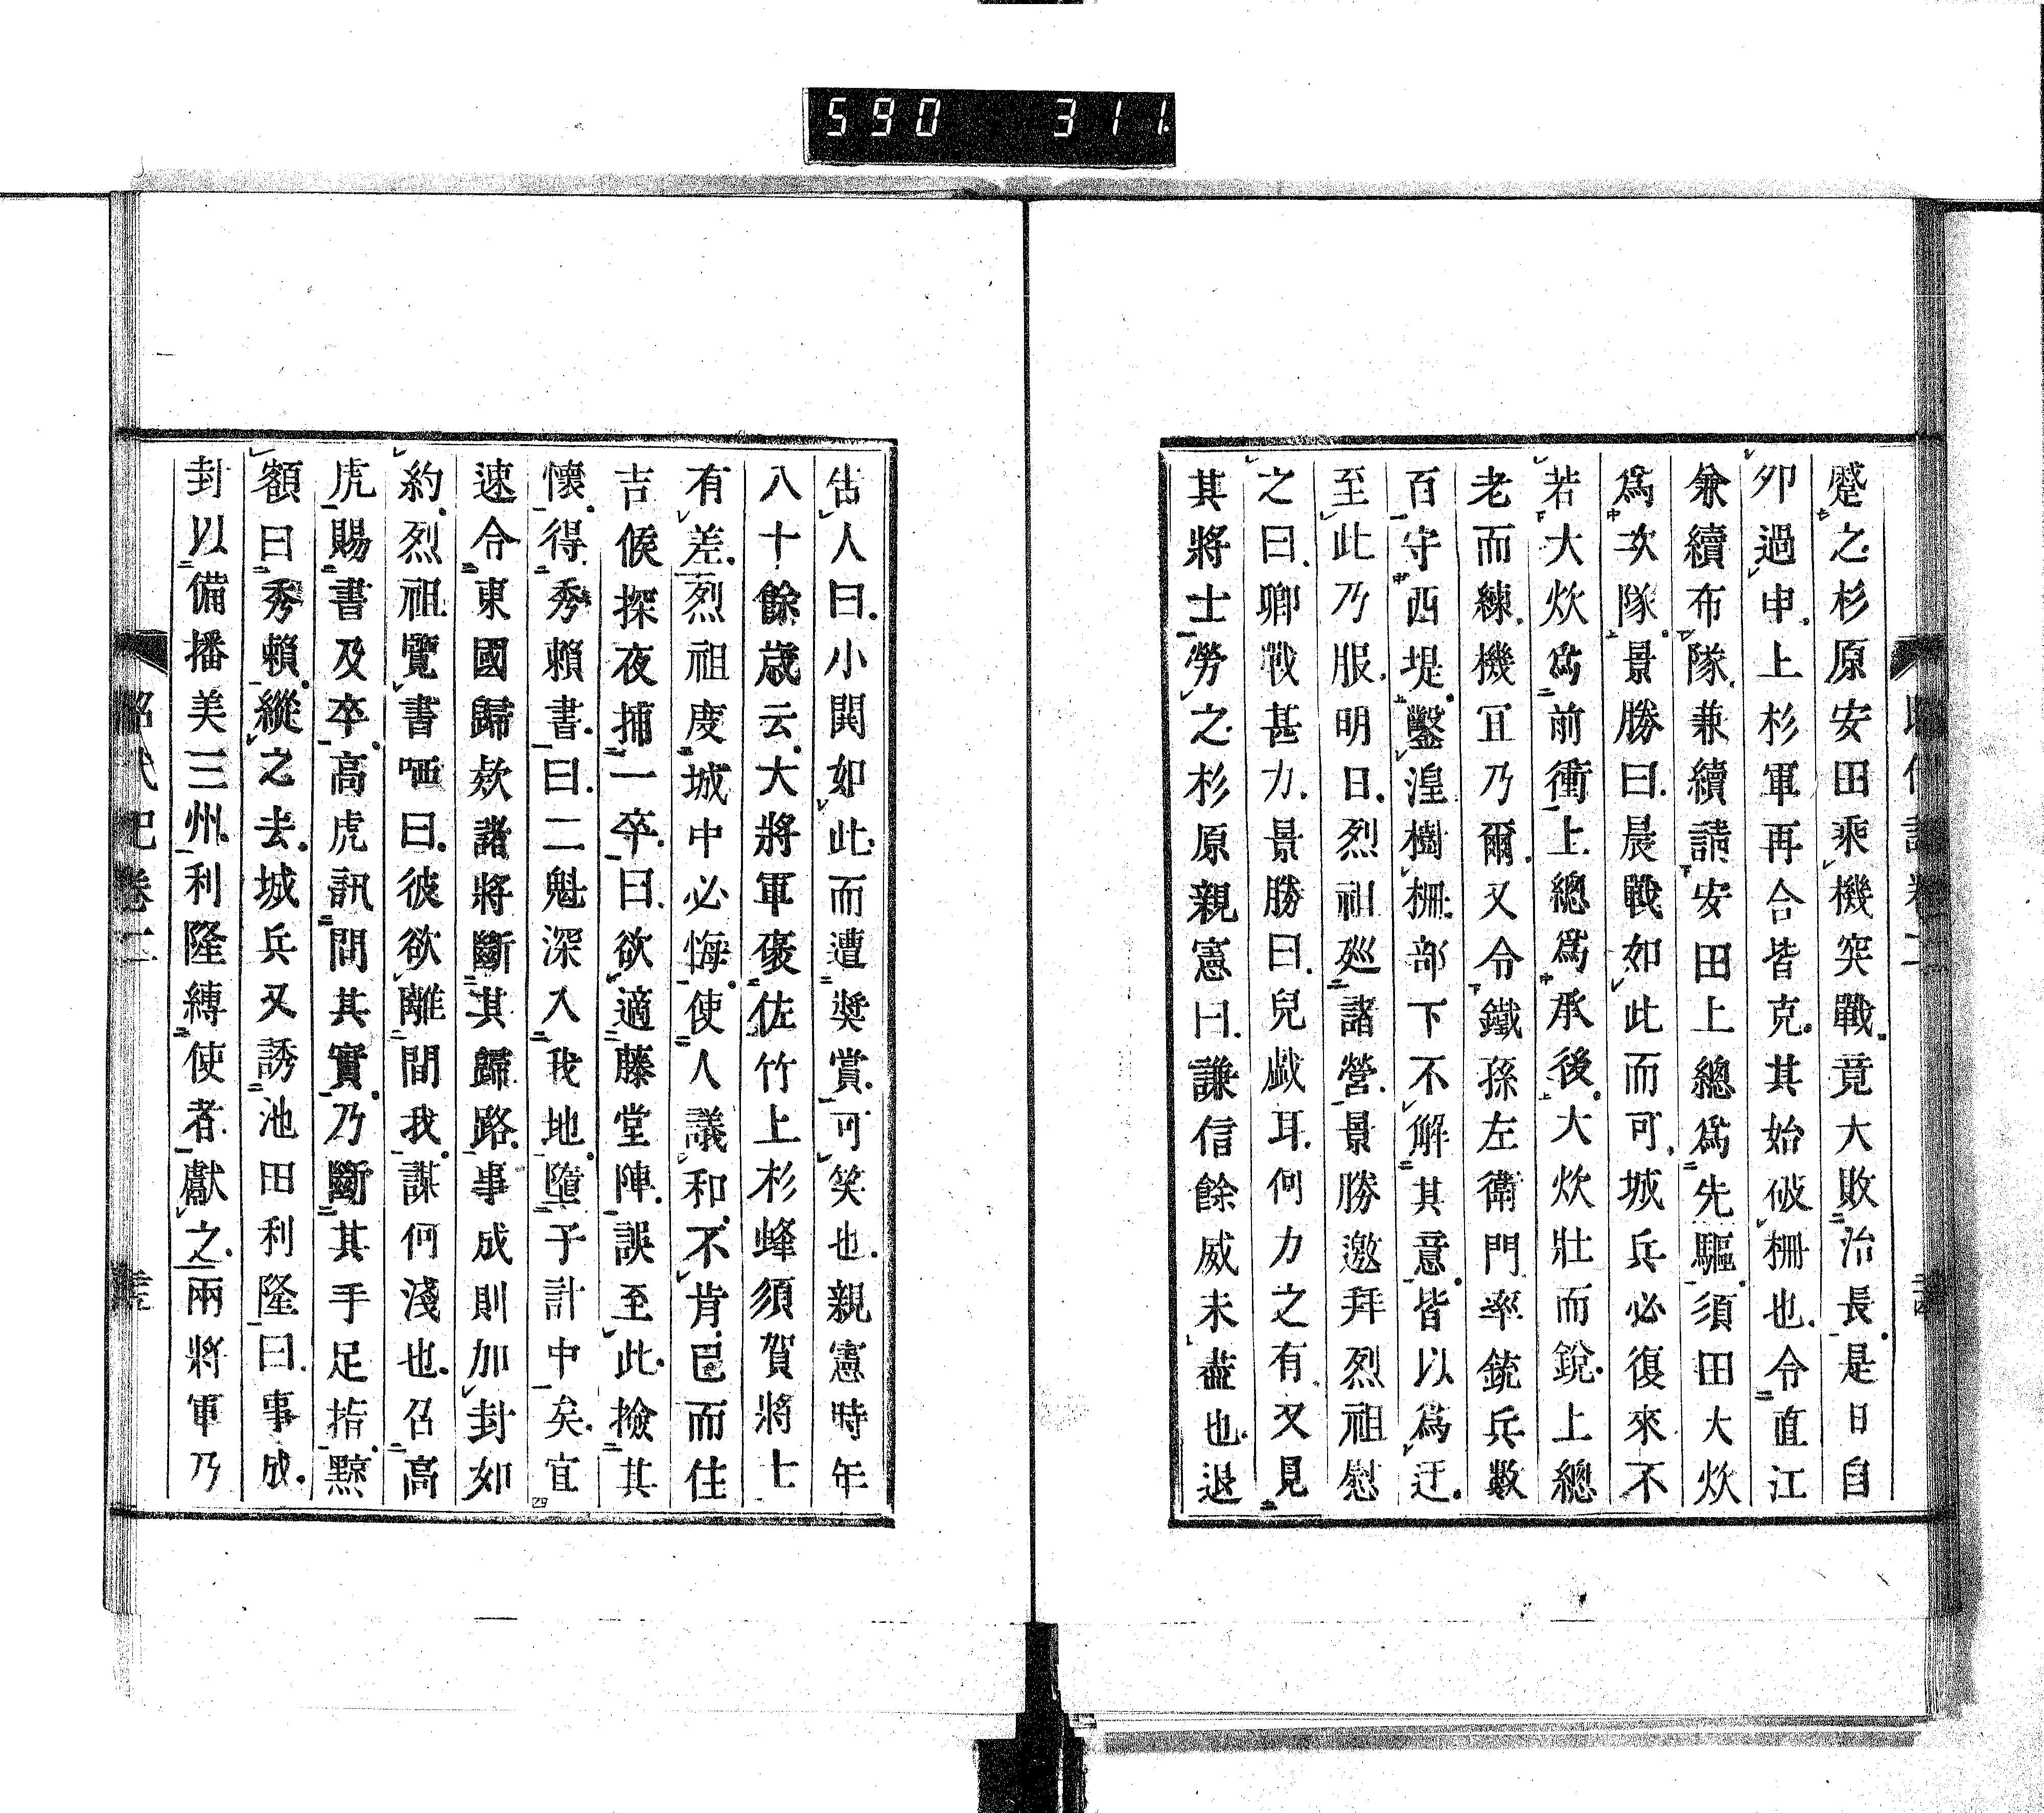 590 311
蹙之杉原安田乘機突戰竟大敗治長是日自
卯過申上杉軍再合皆克其始破柵也令直江
兼續布隊兼續請安田上總爲先驅須田大炊
爲次隊景勝曰晨戰如此而可城兵必復來不
若大炊爲前衝上總爲承後大炊壯而銳上總
老而練機宜乃爾又令鐵孫左衛門率銃兵數
百守西堤鑿湟樹柵部下不解其意皆以爲迂
至此乃服明日烈祖廵諸營景勝邀拜烈祖慰
之曰卿戰甚力景勝曰兒戲耳何力之有又見
其將士勞之杉原親憲曰謙信餘威未盡也退
告人曰小鬨如此而遭奬賞可笑也親憲時年
八十餘歲云大將軍褒佐竹上杉蜂須賀將士
有差烈祖度城中必悔使人議和不肯已而住
吉候探夜捕一卒曰欲適藤堂陣誤至此撿其
懷得秀賴書曰二魁深入我地墮予計中矣宜
速合東國歸欵諸將斷其歸路事成則加封如
約烈祖覽書哂曰彼欲離間我謀何淺也召高
虎賜書及卒高虎訊問其實乃斷其手足指黥
額曰秀賴縱之去城兵又誘池田利隆曰事成
封以備播美三州利隆縛使者獻之兩將軍乃